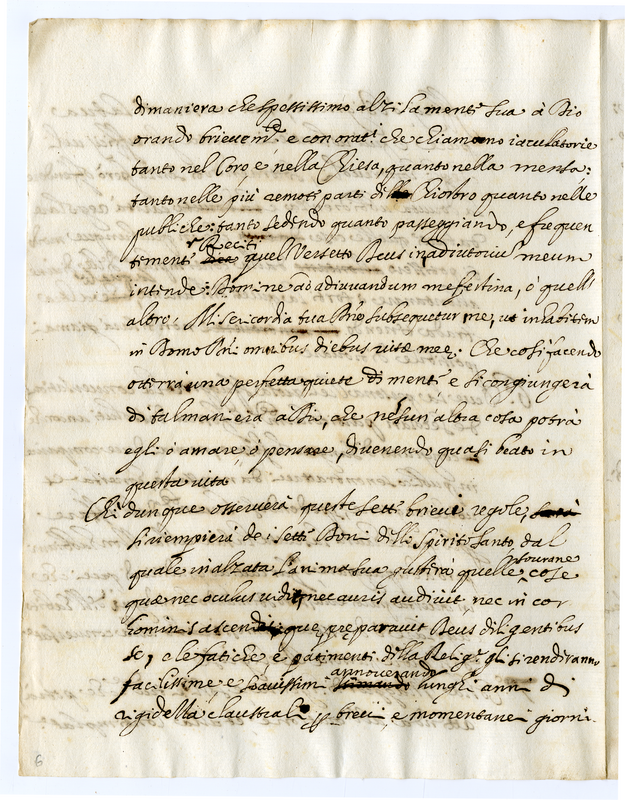 dimaniera che spessissimo alzi la ment.e sua à Dio
orando brievem.te e con orat.i che chiamono iaculatorie
tanto nel Coro e nella Chiesa, quanto nella mensa:
tanto nelle più remote parti del Chiostro quanto nelle
publiche: tanto sedendo quanto passeggiando, e frequen
Reciti
tement.e quel Versetto Deus in adiutoriũ meum
intende: Domine ad adiuvandum me festina, ò quell'
altro, Misericordia tua Dñe subsequetur me, ut inhabitem
in Domo Dñi omnibus diebus vitæ meę. Che così facendo
otterrà una perfetta quiete di mente e si congiungerà
di tal maniera à Dio, che nesun' altra cosa potrà
egli ò amare, ò pensare, divenendo quasi beato in
questa vita
Chi dunque osserverà queste sette brievi regole,
si riempierà de i sette Doni dello Spirito Santo dal
sourane
quale inalzata l'anima sua gusterà quelle cose
quæ nec oculus vidit, nec auris audivit nec in cor
hominis ascendit, quę pręparavit Deus diligentibus
se, e le fatiche e patimenti della Relig.e gli si renderanno
annoverando
facilissime e soavissim lunghi anni di
rigidella claustrali p brevi e momentanei giorni.
6